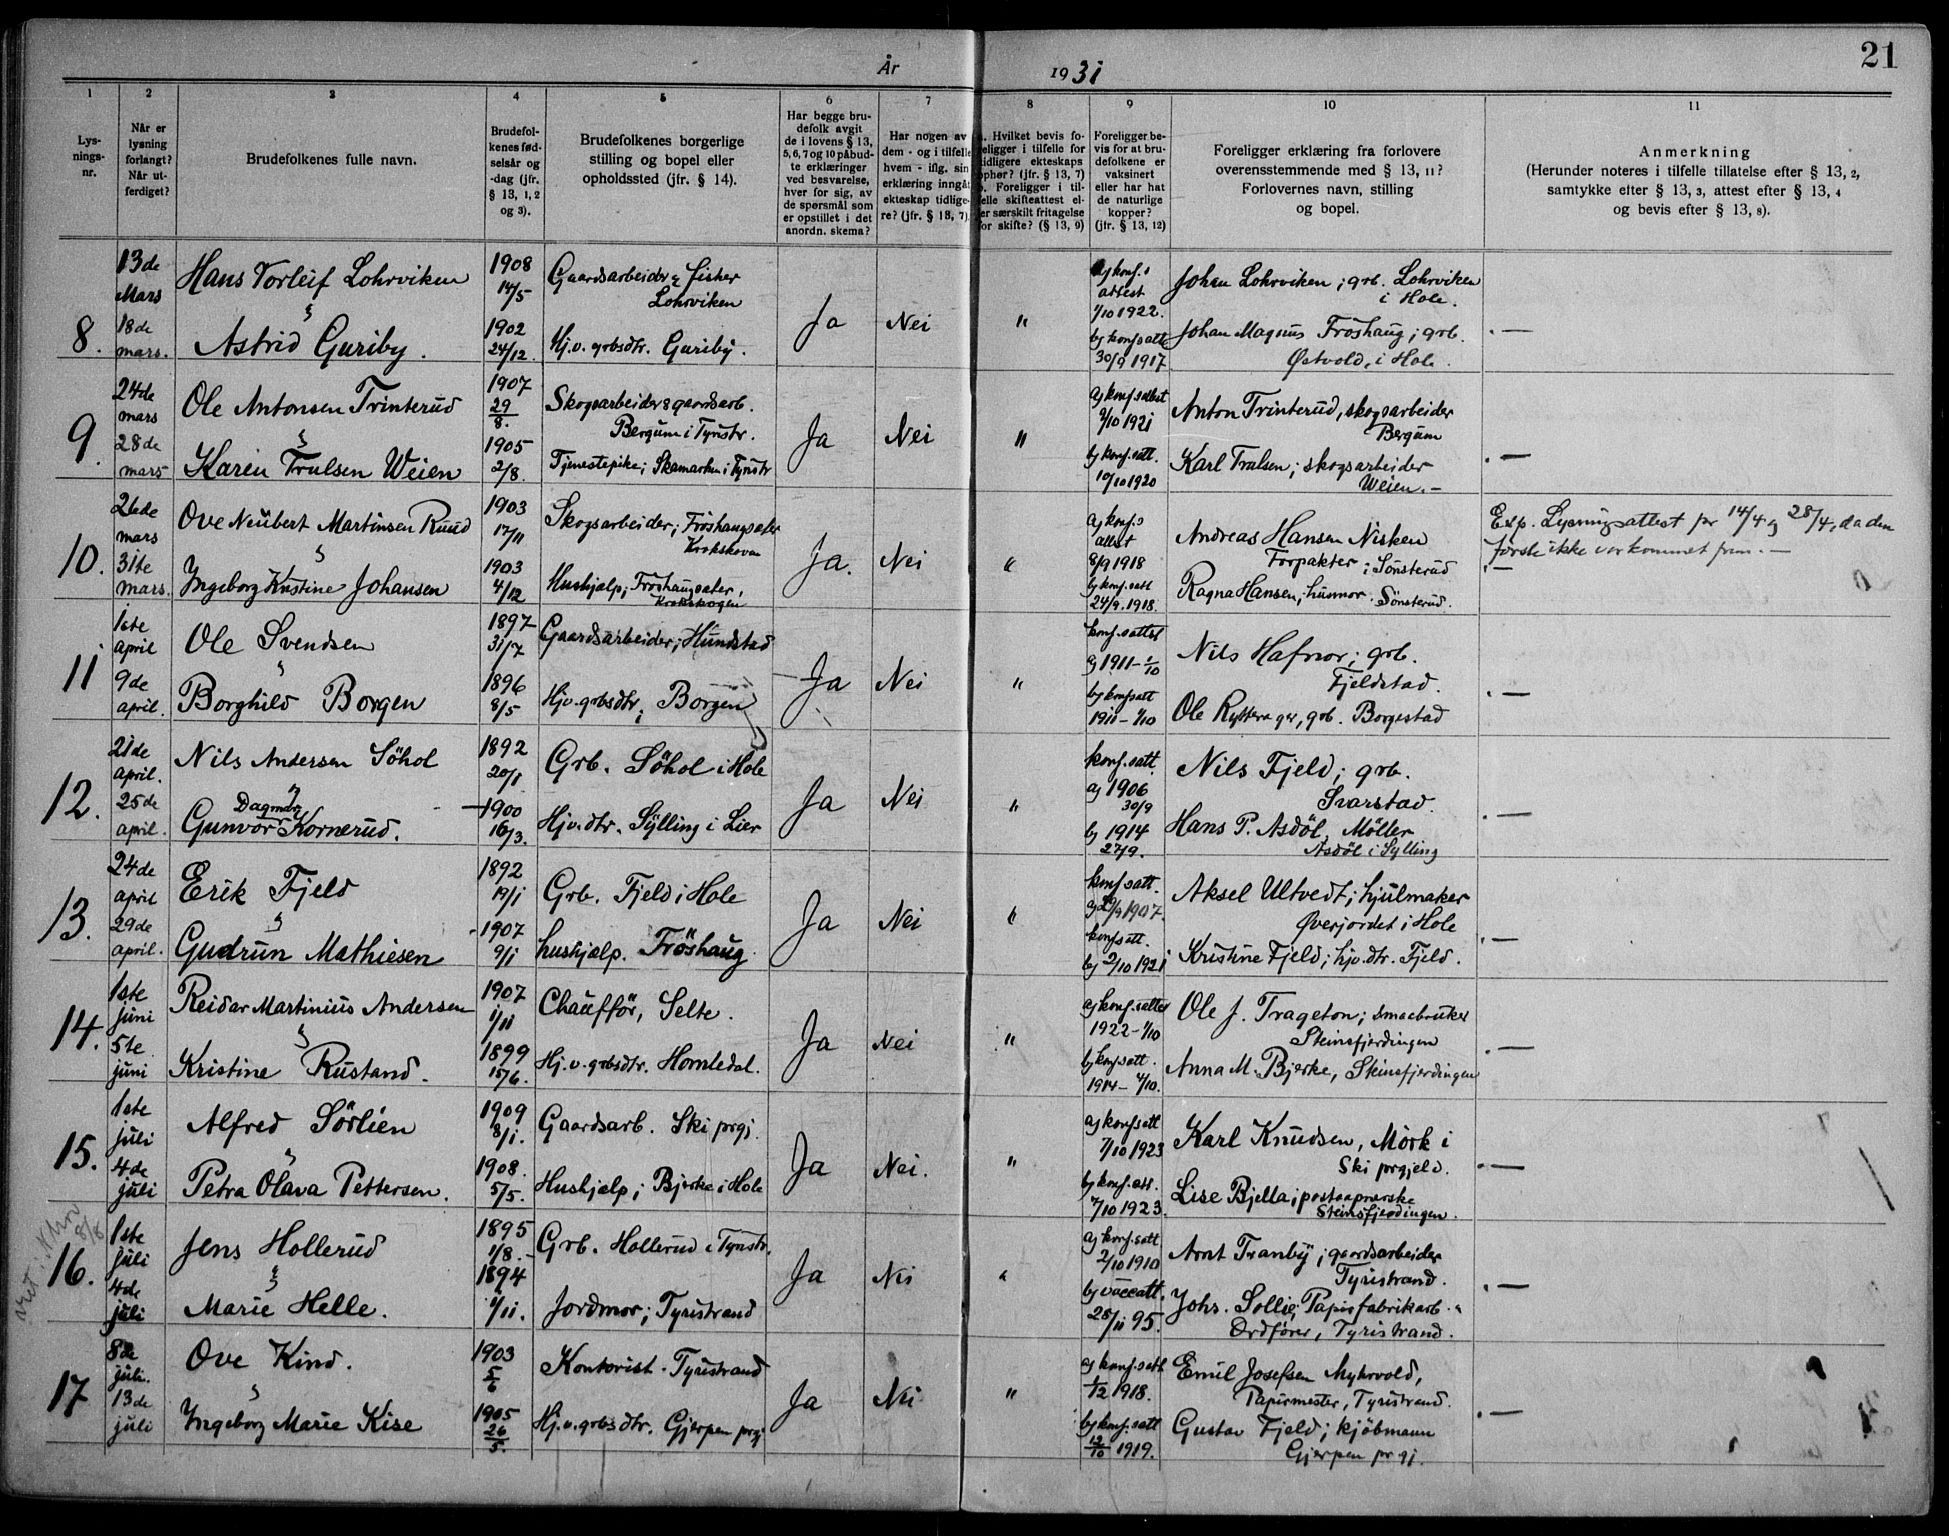 21
År 1931
1 2 3 4 5 6 7 8 9 10 11
Lys-
nings-
nr.
Når er
lysning
forlangt?
Når ut-
ferdiget?
Brudefolkenes fulle navn.
Brudefol-
kenes fød-
selsår og
-dag (jfr.
§ 13, 1, 2
og 3).
Brudefolkenes borgerlige
stilling og bopel eller
opholdssted (jfr. § 14).
Har begge bru-
defolk avgit
de i lovens § 13,
5, 6, 7 og 10 påbud-
te erklæringer
ved besvarelse,
hver for sig, av
de spørsmål som
er opstillet i det
anordn. skema?
Har nogen av
dem - og i tilfelle
hvem - iflg. sin
erklæring inngåt
ekteskap tidlige-
re? (jfr. § 13, 7).
Hvilket bevis fo-
religger i tilfelle for
tidligere ekteskaps
ophør? (jfr. § 13, 7)
Foreligger i til-
felle skifteattest el-
er særskilt fritagelse
for skifte? (§ 13, 9)
Foreligger be-
vis for at bru-
defolkene er
vaksinert
eller har hat
de naturlige
kopper?
(jfr. § 13, 12)
Foreligger erklæring fra forlovere
overensstemmende med § 13, 11?
Forlovernes navn, stilling
og bopel.
Anmerkning
(Herunder noteres i tilfelle tillatelse efter § 13, 2,
samtykke efter § 13, 3, attest efter § 13, 4
og bevis efter § 13, 8).
8. 13de Mars 18de mars.
Hans Torleif Lohrviken
Astrid Guriby.
1908 14/5
1902 24/12.
Gaardsarbeider & fisker
Lohrviken
Hj.v. grbsdtr. Guriby.
Ja Nei "
a) konf.s attest 1/10 1922.
b) konf.satt. 30/9 1917
Johan Lohrviken; grb. Lohrviken
i Hole.
Johan Magnus Fröshaug; grb.
Østvold, i Hole.
. —
9. 24de mars 28de mars
Ole Antonsen Trinterud
Karen Trulsen Weien
1907 29/8.
1905 2/8.
Skogsarbeider & gaardsarb.
Bergum i Tyristr.
Tjenestepike; Skamarken i Tyristr
Ja Nei "
a) konf.sattest 2/10 1921
b) konf.satt. 10/10 1920
Anton Trinterud, skogsarbeider
Bergum
Karl Trulsen; skogsarbeider
Weien. -
. —
10. 26de mars 31te mars.
Ove Neubert Martinsen Ruud
Yngeborg Kristine Johansen
1903 17/11
1903 4/12
Skogsarbeider; Fröshaugsæter
Krokskoven
Hushjælp; Fröshaugsæter,
Krokskogen
Ja. Nei "
a) konf.s attest 8/9 1918
b) konf.satt 24/9. 1918.
Andreas Hansen Nisken
Forpakter; Sönsterud
Ragna Hansen; husmor. Sönsterud.
Exp. Lysningsattest pr 14/4 og 28/4, da den
første ikke var kommet frem. —
—
11 1ste april 9de april.
Ole Svendsen
Borghild Borgen
1897 31/7
1896 8/5
Gaardsarbeider; Hundstad
Hj.v. grbsdtr; Borgen
Ja Nei "
konf.sattest
a) 1911 - 1/10
b) konf.satt 1911 - 1/10
Nils Hafnor; grb.
Fjeldstad.
Ole Rytterager, grb. Borgestad
. —
12. 21de april. 25de april.
Nils Andersen Söhol
Dagmar
Gunvor Kornerud.
1892 20/1
1900 16/3.
Grb. Söhol i Hole
Hjv. dtr. Sylling i Lier
Ja Nei "
konf.satt.
a) 1906 30/9
b) 1914 27/9.
Nils Fjeld; grb.
Svarstad.
Hans P. Asdöl, Möller
Asdöl i Sylling
. —
13. 24de april 29de april.
Erik Fjeld
Gudrun Mathiesen
1892 19/1
1907 9/1
Grb. Fjeld i Hole
hushjælp. Fröshaug
Ja Nei "
konf.satt.
1907.
konf.satt.
b) 2/10 1921
Aksel Ultvedt; hjulmaker
Øverjordet i Hole
Kristine Fjeld; hjv. dtr. Fjeld.
. —
14. 1ste juni 5te juni
Reidar Martinius Andersen
Kristine Rustand.
1907 1/11
1899 15/6.
Chaufför, Selte.
Hj.v. grbsdtr. Homledal.
Ja Nei "
a) konf.sattes 1922 - 1/10
b) konf.satt. 1914 - 4/10.
Ole J. Trageton; smaabruker
Steinsfjerdingen
Anna M. Bjerke, Steinsfjerdingen
. —
15. 1ste juli 4de juli
Alfred Sörlien
Petra Olava Pettersen.
1909 8/1.
1908. 5/5.
Gaardsarb. Ski prgj.
Hushjælp; Bjerke i Hole
Ja Nei. "
a) konf.satt 7/10 1923
b) konf.att. 7/10 1923.
Karl Knudsen, Mörk i
Ski prgjeld.
Lise Bjella; postaapnerske
Steinsfjerdingen.
. —
16. 1ste juli 4de juli
8/8
Jens Hollerud
Marie Helle.
1895 1/8.
1894 1/11.
Grb. Hollerud i Tyristr.
Jordmor; Tyristrand
Ja Nei "
a) konf.satt 2/10 1910
b) vaccatt. 28/11 95.
Arnt Tranby; gaardsarbeider
Tyristrand.
Johs. Sollie; Papirfabrikarb.
Ordfører, Tyristrand.
. —
17 8de juli. 13de juli
Ove Kind.
Yngeborg Marie Kise
1903 5/6
1905 26/5.
Kontorist. Tyristrand
Hj.v. grbsdtr. Gjerpen prgj
Ja Nei "
a) konf.satt 1/12 1918.
b) konf.satt 12/10 1919.
Emil Josefsen Myhrvold,
Papirmester, Tyristrand.
Gustav Fjeld; kjöbmann
Gjerpen prgj.
. —